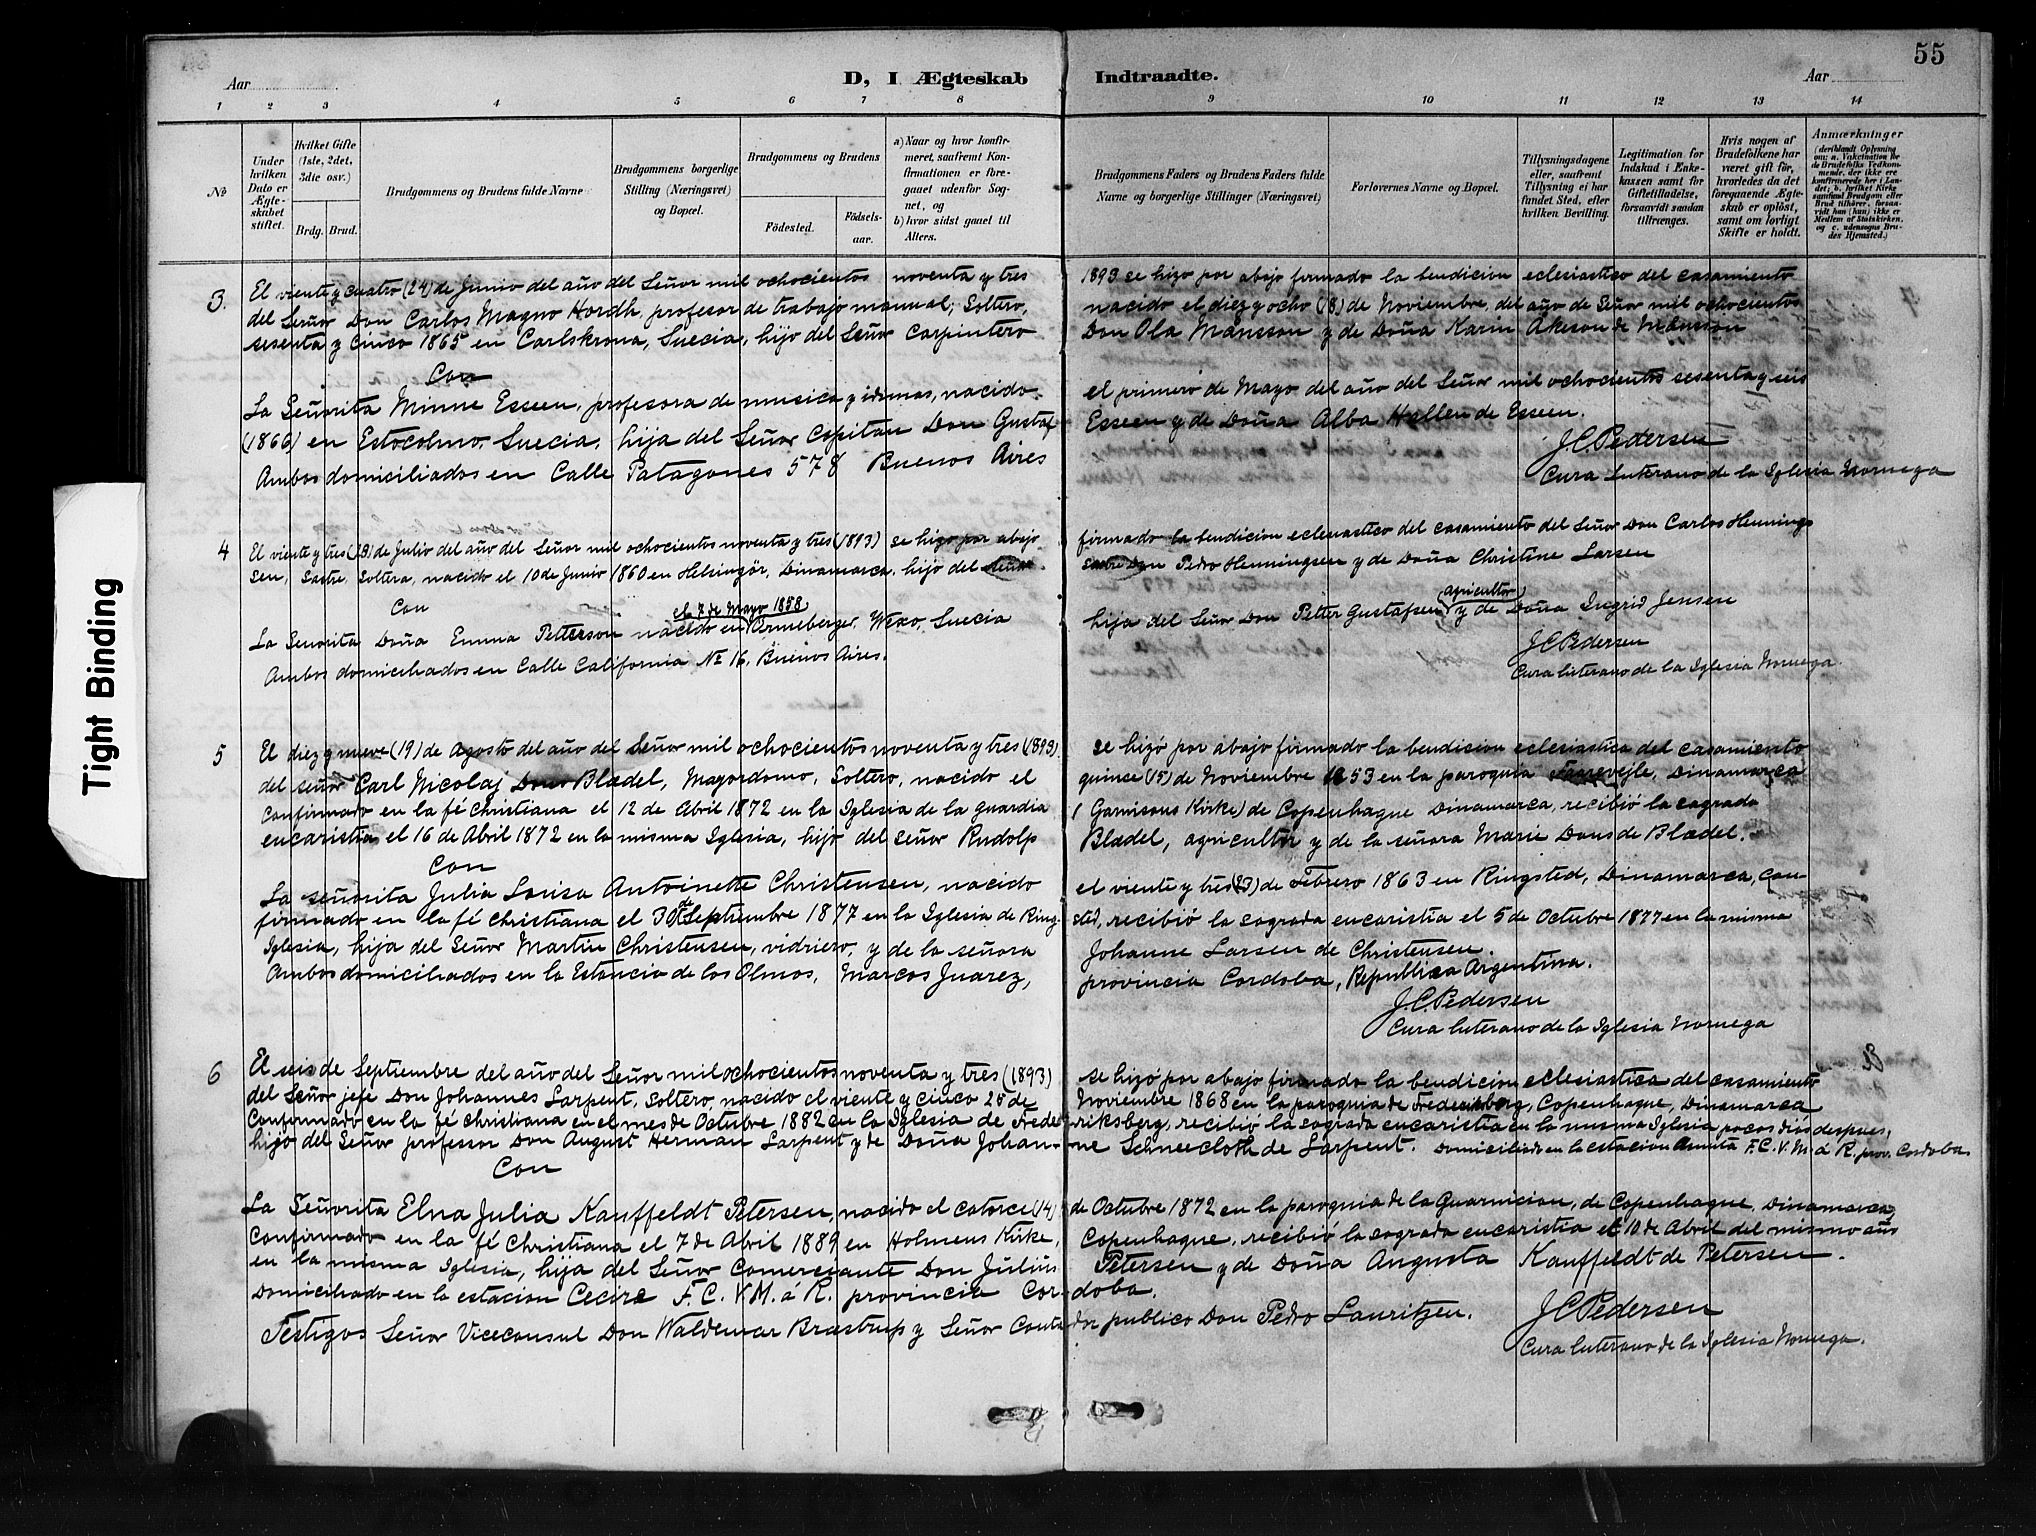 55
Aar
D, I Ægteskab Indtraadte.
Aar
1 2 3 4 5 6 7 8 9 10 11 12 13 14
No
Under hvilken Dato er Ægteskabet stiftet.
Hvilket Gifte (1ste, 2det, 3die osv.)
Brdg. Brud.
Brudgommens og Brudens fulde Navne
Brudgommens borgerlige Stilling (Næringsvei) og Bopæl.
Brudgommens og Brudens
Fødested.
Fødsels-aar.
a) Naar og hvor konfirmeret, saafremt Konfirmationen er foregaaet udenfor Sognet, og
b) hvor sidst gaaet til Alters.
Brudgommens Faders og Brudens Faders fulde Navne og borgerlige Stillinger (Næringsvei)
Forlovernes Navne og Bopæl.
Tillysningsdagene eller, saafremt Tillysning ei har fundet Sted, efter hvilken Bevilling.
Legitimation for Indskud i Enkekassen samt for Giftetilladelse, forsaavidt saadan tiltrænges.
Hvis nogen af Brudefolkene har været gift før, hvorledes da det foregaaende Ægteskab er opløst, samt om lovligt Skifte er holdt.
Anmærkninger (deriblandt Oplysning om: a. Vakcination for de Brudefolks Vedkommende, der ikke ere konfirmerede her i Landet; b. hvilket Kirkesamfund Brudgom eller Brud tilhører, forsaavidt han (hun) ikke er Medlem af Statskirken, og c. udensogns Brudes Hjemsted.)
3. El viente y cuatro (24) de Junio del año del Señor mil ochocientos noventa y tres 1893 se hizo por abajo firmado la bendicion eclesiastico del casamiento
del Señor Don Carlos Magno Hordh, profesor de trabajo manual, Soltero, nacido el diez y ocho (18) de Noviembre, del año de Señor mil ochocientos
sesenta y cinco 1865 en Carlskrona, Suecia, hijo del Señor Carpintero Don Ola Månsson y de Doña Karin Åkeson de Månsson
Con
La Señorita Minne Esseen, profesora de musica y idimas, nacido el primero de Mayo del año del Señor mil ochocientos sesenta y seis
(1866) en Estocolmo, Suecia, hija del Señor Capitan Don Gustaf Esseen y de Doña Alba Hallen de Esseen.
Ambos domiciliados en Calle Patagones 578 Buenos Aires
J.C.Pedersen
Cura Luterano de la Iglesia Noruega
4 El viente y tres (23) de Julio del año del Señor mil ochocientos noventa y tres (1893) se hizo por abajo firmado la bendicion eclenastico del casamiento del Señor Don Carlos Hennings
sen, Sastre, Soltera, nacido el 10 de Junio 1860 en Helsingör, Dinamarca, hijo del Señor sastre Don Pedro Henningsen y de Doña Christine Larsen
Con
el 7 de Mayo 1858 agricultor
La Senorita Doña Emma Petterson nacido en Ormeberger, Wexo, Suecia hija del Señor Don Petter Gustafsen y de Doña Ingrid Jensen
Ambos domiciliados en Calle California No 16, Buenos Aires.
J C Pedersen
Cura luterano de la Iglesia Noruega.
5 El diez y nueve (19) de Agosto del año del Señor mil ochocientos noventa y tres (1893) se hizó por abajo firmado la bendicion eclesiastica del casamiento
del señor Carl Nicolaj Dons Blædel, Mayordomo, Soltero, nacido el quinse (15) de Noviembre 1853 en la paroquia Faarevejle, Dinamarca
Confirmado en la fé Christiana el 12 de Abril 1872 en la Iglesia de la guardia (Garnisons Kirke) de Copenhague Dinamarca, recibió la sagrada
eucaristia el 16 de Abril 1872 en la misma Iglesia, hijo del señor Rudolp Blædel, agricultor y de la señora Marie Dons de Blædel.
Con
La señorita Julia Lovisa Antoinette Christensen, nacido el viente y tres (23) de Febrero 1863 en Ringsted, Dinamarca, con
firmado en la fé christiana el 30 de Septiembre 1877 en la Iglesia de Ring- sted, recibió la sagrada eucaristia el 5 de Octubre 1877 en la misma
Iglesia, hija del Señor Martin Christensen, vidriero, y de la señora Johanne Larsen de Christensen.
Ambos domiciliados en la Estancia de los Olmos, Marcos Juarez, provincia Cordoba, Republica Argentina.
J.C.Pedersen
Cura luterano de la Iglesia Noruega
6 El seis de Septiembre del año del Señor mil ochocientos noventa y tres (1893) se hizó por abajo firmado la bendicion eclesiastica del casamiento
del Señor jefe Don Johannes Larpent, Soltero, nacido el viente y cinco 25 de Noviembre 1868 en la paroquia de Frederiksberg, Copenhague, Dinamarca
Confirmado en la fé christiana en el mes de Octubre 1882 en la Iglesia de Frede- riksberg, recibió la sagrada eucaristia en la misma Iglesia pocos dias despues,
hijo del Señor professor Don August Herman Larpent y de Doña Johan- ne Schneekloth de Larpent. Domiciliado en la estacion F.C.V.M. á R. prov. Cordoba
Con
La Señorita Elna Julia Kauffeldt Petersen, nacido el catorce (14) de Octubre 1872 en la paroquia de la Guarnicion, de Copenhague, Dinamarca
Confirmado en la fé Christiana el 7 de Abril 1889 en Holmens Kirke, Copenhague, recibió la sagrada eucaristia el 10 de Abril del mismo año
en la misma Iglesia, hija del Señor Comerciante Don Julius Petersen y de Doña Augusta Kauffeldt de Petersen.
Domiciliado en la estacion F.C.V.M. á R. provincia Cor- doba.
Testigos Señor Viceconsul Don Waldemar Brastrup y Señor Conta dor publico Don Pedro Lauritzen.
J C Pedersen
Cura luterano de la Iglesia Noruega.
Tight Binding